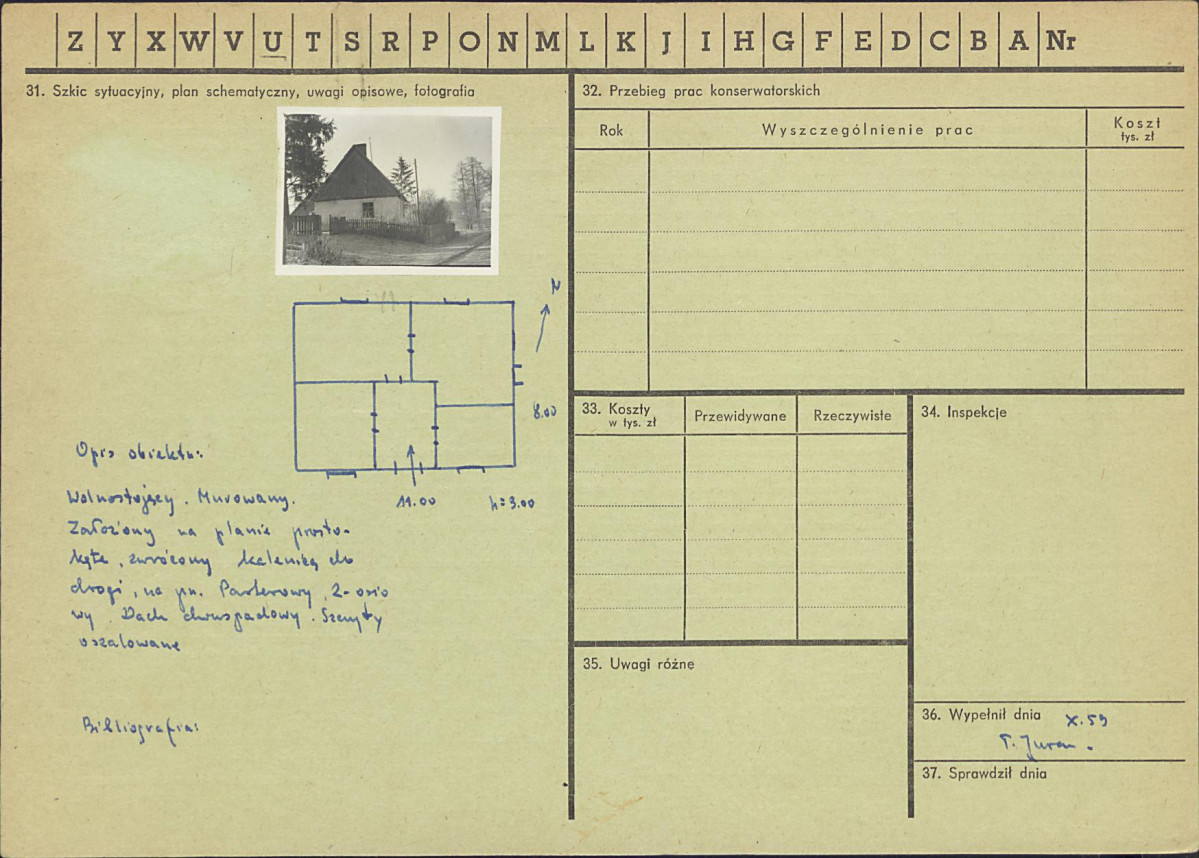 Z Y X W V U T S R P O N M L K J I H G F E D C B A Nr
31. Szkic sytuacyjny, plan schematyczny, uwagi opisowe, fotografia
N
8.00
11.00 h=3.00
Opis obiektu:
Wolnostojący. Murowany.
Założony na planie prosto-
kąta, zwrócony kalenicą do
drogi, na pn. Parterowy, 2-osio
wy. Dach dwuspadowy. Szczyty
oszalowane
Bibliografia:
32. Przebieg prac konserwatorskich
Rok Wyszczególnienie prac Koszt
tys. zł
33. Koszty
w tys. zł
Przewidywane Rzeczywiste
34. Inspekcje
35. Uwagi różne
36. Wypełnił dnia X.59
T. Juran.
37. Sprawdził dnia